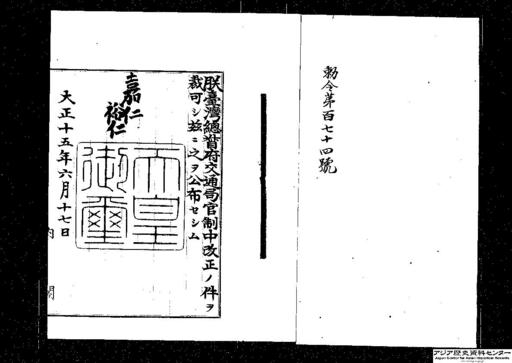 勅令第百七十四號
朕臺灣總督府交通局官制中改正ノ件ヲ
裁可シ茲ニ之ヲ公布セシム
嘉仁
裕仁
天皇御璽
大正十五年六月十七日
内閣
アジア歴史資料センター
Japan Center for Asian Historical Records